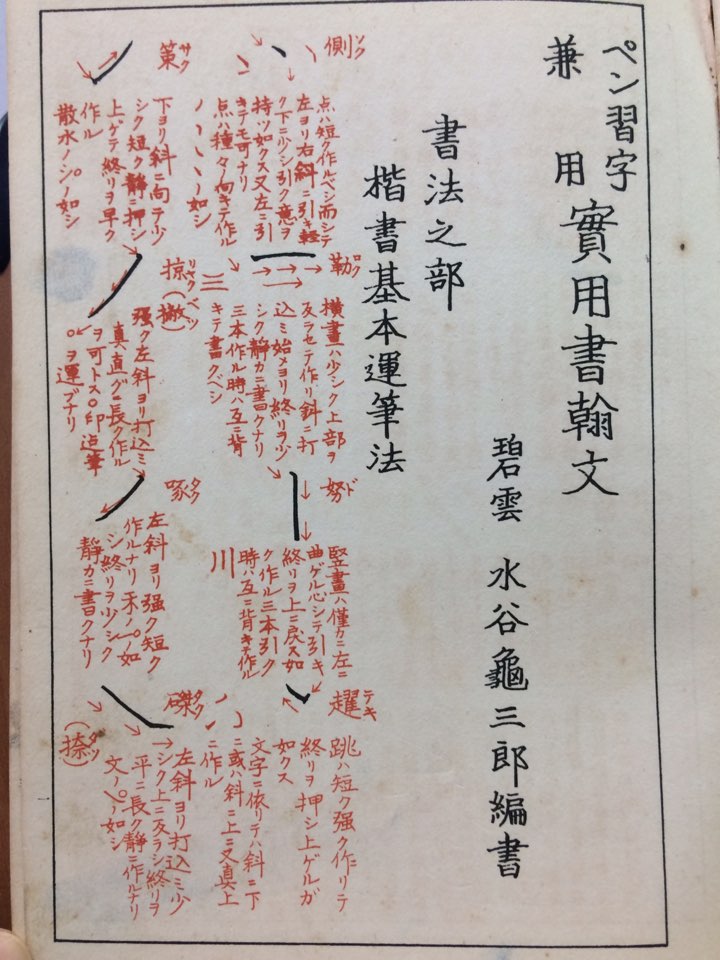 ペン習字
兼用
實用書翰文
碧雲 水谷龜三郎編書
書法之部
楷書基本運筆法
側ソク
点ハ短ク作ルベシ而シテ
左ヨリ右斜ニ引キ軽
ク下ニ少シ引ク意ヲ
持ツ如クス又左ニ引
キテモ可ナリ
点ハ種々ノ向キテ作ル
ノ如シ
勒ロク
横畫ハ少シク上部ヲ
反ラセテ作リ斜ニ打
込ミ始メヨリ終リヲ少
シク靜カニ書クナリ
三本作ル時ハ互ニ背
キテ書クベシ
三
努ド
竪畫ハ僅カニ左ニ
曲ゲル心シテ引キ
終リヲ上ニ戻ス如
ク作ル三本引ク
時ハ互ニ背キテ作ル
川
趯テキ
跳ハ短ク強ク作リテ
終リヲ押シ上ゲルガ
如クス
文字ニ依リテハ斜ニ下
ニ或ハ斜ニ上ニ又真上
ニ作ル
策サク
下ヨリ斜ニ向テ少
シク短ク靜ニ押シ
上ゲテ終リヲ早ク
作ル
散水ノシノ如シ
掠リヤク(撇ベツ)
強ク左斜ヨリ打込ミ
真直グニ長ク作ル
ヲ可トス○印迠筆
○ヲ運ブナリ
啄タク
左斜ヨリ强ク短ク
作ルナリ禾ノノノ如
シ終リヲ少シク
靜カニ書クナリ
磔タク
(捺ダツ)
左斜ヨリ打込ミ少
シク上ニ反ラシ終リヲ
平ニ長ク靜ニ作ルナリ
文ノ乀ノ如シ